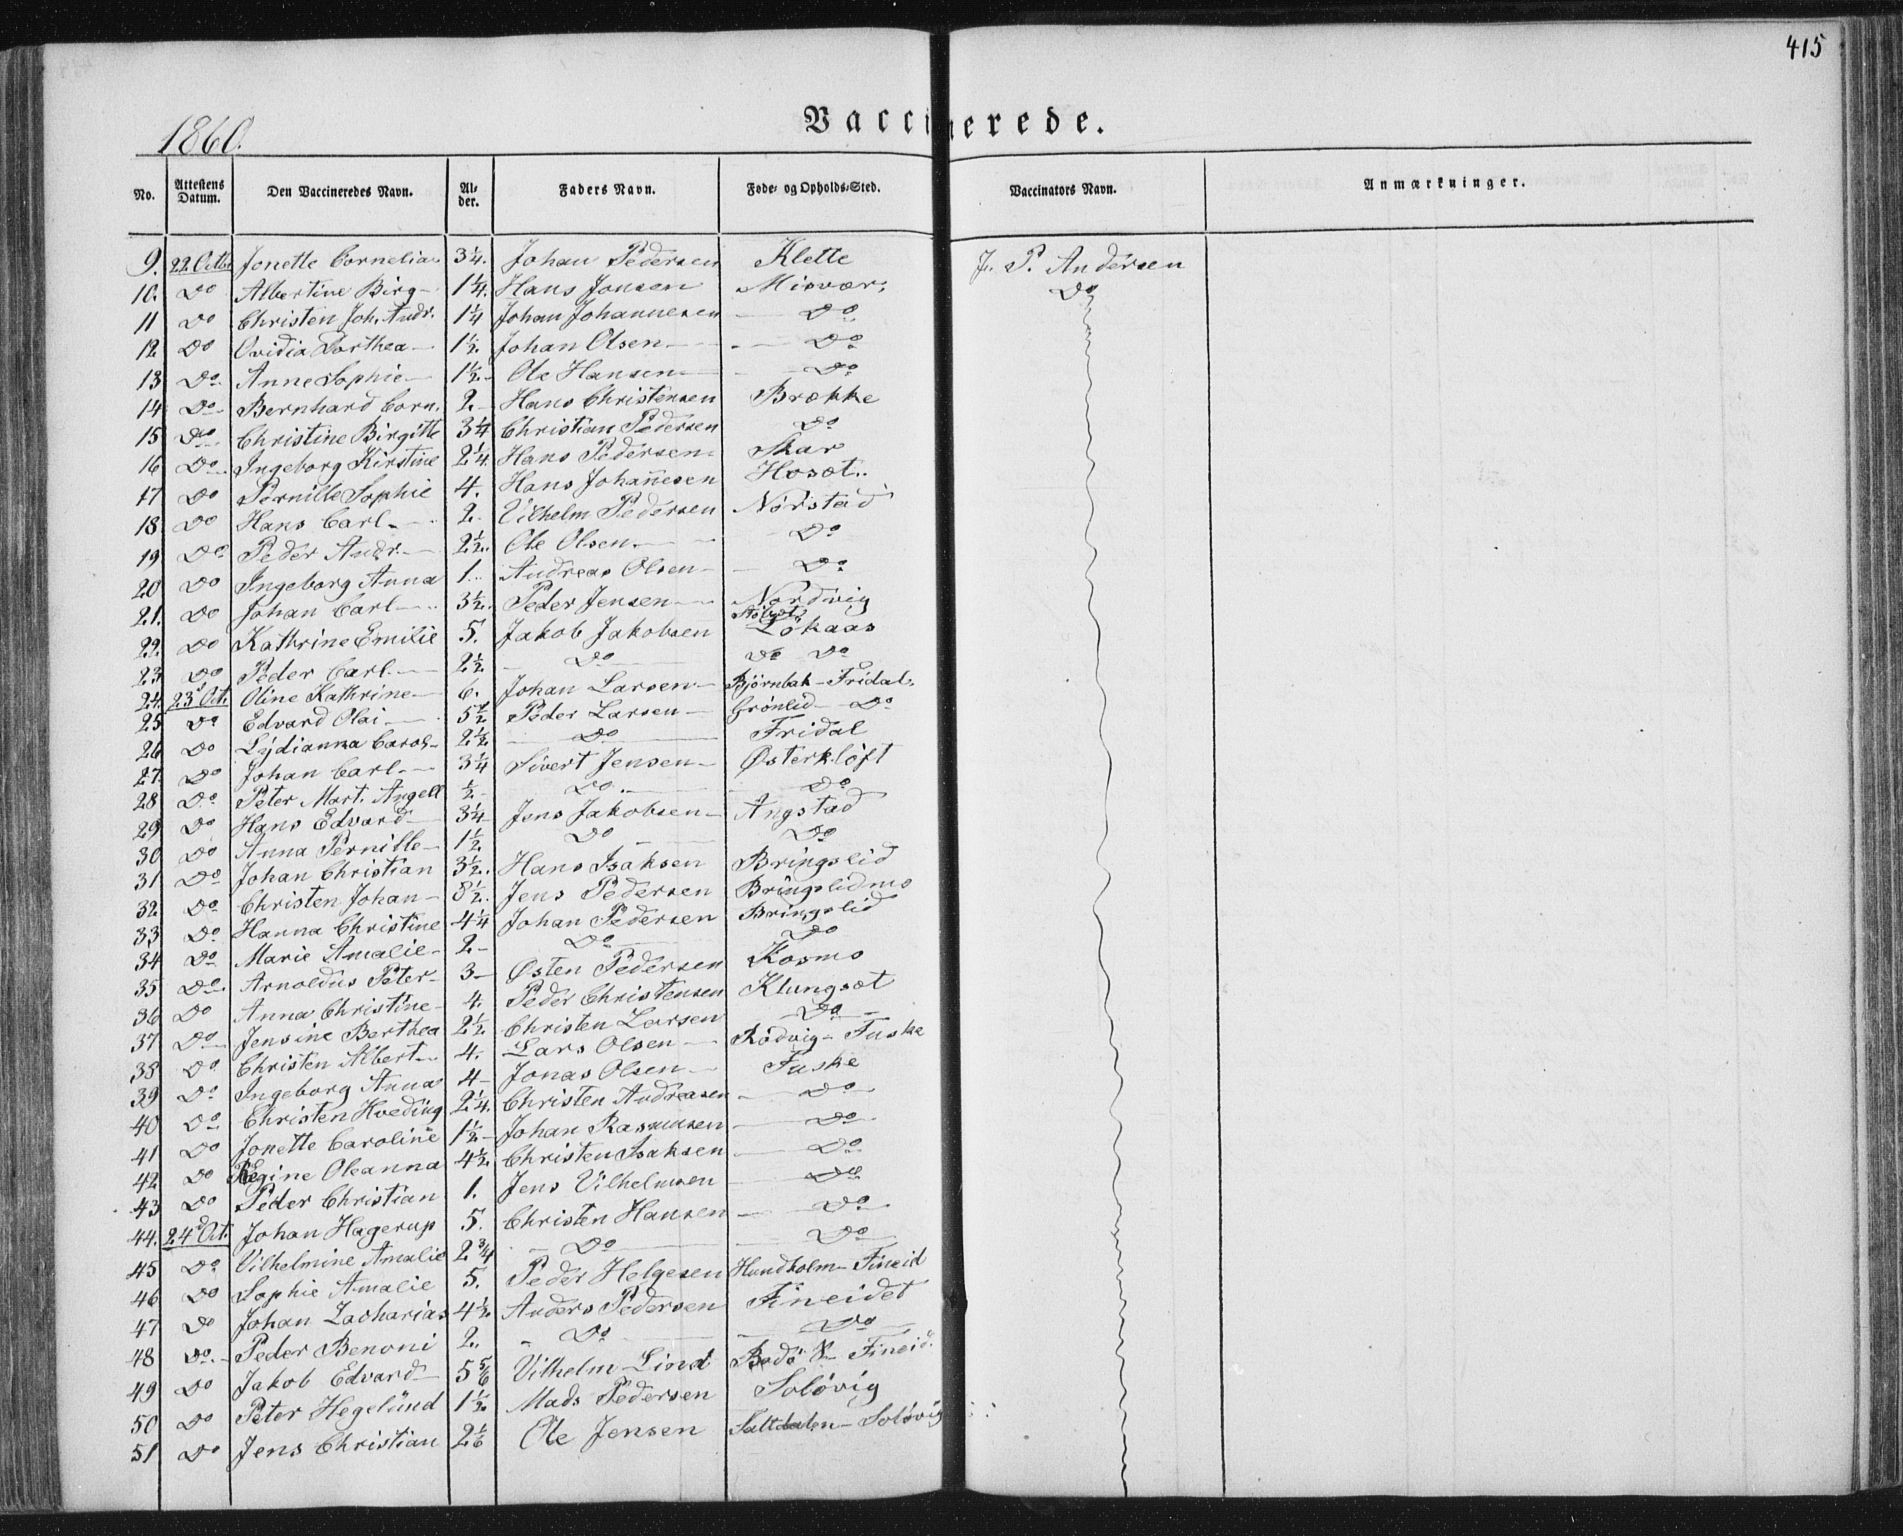 415
1860.
Vaccinerede.
No. Attestens Datum. Den Vaccineredes Navn. Al- der. Faders Navn. Føde- og Opholds-Sted. Vaccinators Navn. Anmærkninger.
9. 22. Octbr Jonette Cornelia 3 1/4. Johan Pedersen Klette J. P. Andersen
10. Do Albertine Birg- 1 1/4. Hans Jonsen Misvær. Do
11 Do Christen Joh. Andr. 1 1/4 Johan Johannesen Do
12. Do Ovidia Dorthea 1 1/2. Johan Olsen Do
13 Do Anne Sophie 1 1/2. Ole Hansen Do
14 Do Bernhard Corn. 2 Hans Christensen Brække
15 Do Christine Birgitte 3 1/4 Christian Pedersen Do
16 Do Ingeborg Kirstine 2 1/4. Hans Pedersen Skar
17 Do Pernille Sophie 4. Hans Johanesen Hosæt.
18 Do Hans Carl 2. Vilhelm Pedersen Nørstad
19 Do Peder Andr. 2 1/2. Ole Olsen Do
20 Do Ingeborg Anna 1 Andreas Olsen Do
21. Do Johan Carl 3 1/2. Peder Jensen Nordvig
22. Do Kathrine Emilie 5. Jakob Jakobsen Løkaas
23 Do Peder Carl 2 1/2. Do Do Do
24. 23d Oct. Oline Kathrine 6. Johan Larsen Bjørnbak - Fridal.
25 Do Edvard Olai 5 1/2 Peder Larsen Grønlid Do
26 Do Lydianna Carol- 2 1/2 Do Fridal
27. Do Johan Carl 3 1/4 Sivert Jensen Østerkløft
28 Do Peter Mart. Angell 1/2 Do Do
29 Do Hans Edvard 3 1/4 Jens Jakobsen Angstad
30 Do Anna Pernille 1 1/2 Do Do
31 Do Johan Christian 3 1/2. Hans Isaksen Bringslid
32 Do Christen Johan 3 1/2. Jens Pedersen Bringslidmo
33 Do Hanna Christine 4 1/4 Johan Pedersen Bringslid
34 Do Marie Amalie 2 Do Do
35 Do Arnoldus Peter 3 Østen Pedersen Kosmo
36 Do Anna Christine 4. Peder Christensen Klungsæt
37 Do Jensine Berthea 2 1/2 Christen Larsen Do
38 Do Christen Albert 4. Lars Olsen Rødvig - Fuske
39 Do Ingeborg Anna 4 Jonas Olsen Fuske
40 Do Christen Hveding 2 1/4. Christen Andreasen Do
41 Do Jonette Caroline 1 1/2 Johan Rasmusen Do
42 Do Regine Oleanna 4 1/2. Christen Isaksen Do
43 Do Peder Christian 1. Jens Vilhelmsen Do
44. 24d Oct. Johan Hagerup 5. Christen Hansen Do
45 Do Vilhelmine Amalie 2 3/4 Do Do
46 Do Sophie Amalie 5. Peder Helgesen Hundholm - Fineid
47 Do Johan Zacharias 4 1/2 Anders Pedersen Fineidet
48 Do Peder Benoni 2. Do Do
49 Do Jakob Edvard 5 5/6 Vilhelm Lind Bodø Fineid.
50 Do Peter Hegelund 1 1/2 Mads Pedersen Soløvig
51 Do Jens Christian 2 1/6 Ole Jensen Saltdalen - Soløvig